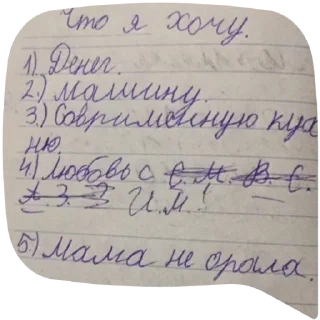 Что я хочу.
1) Денег.
2.) машину.
3.) Совриманную кух
ню.
4) Любовь с С. М. В. С.
А. З. З И.М!
5) Мама не орала.